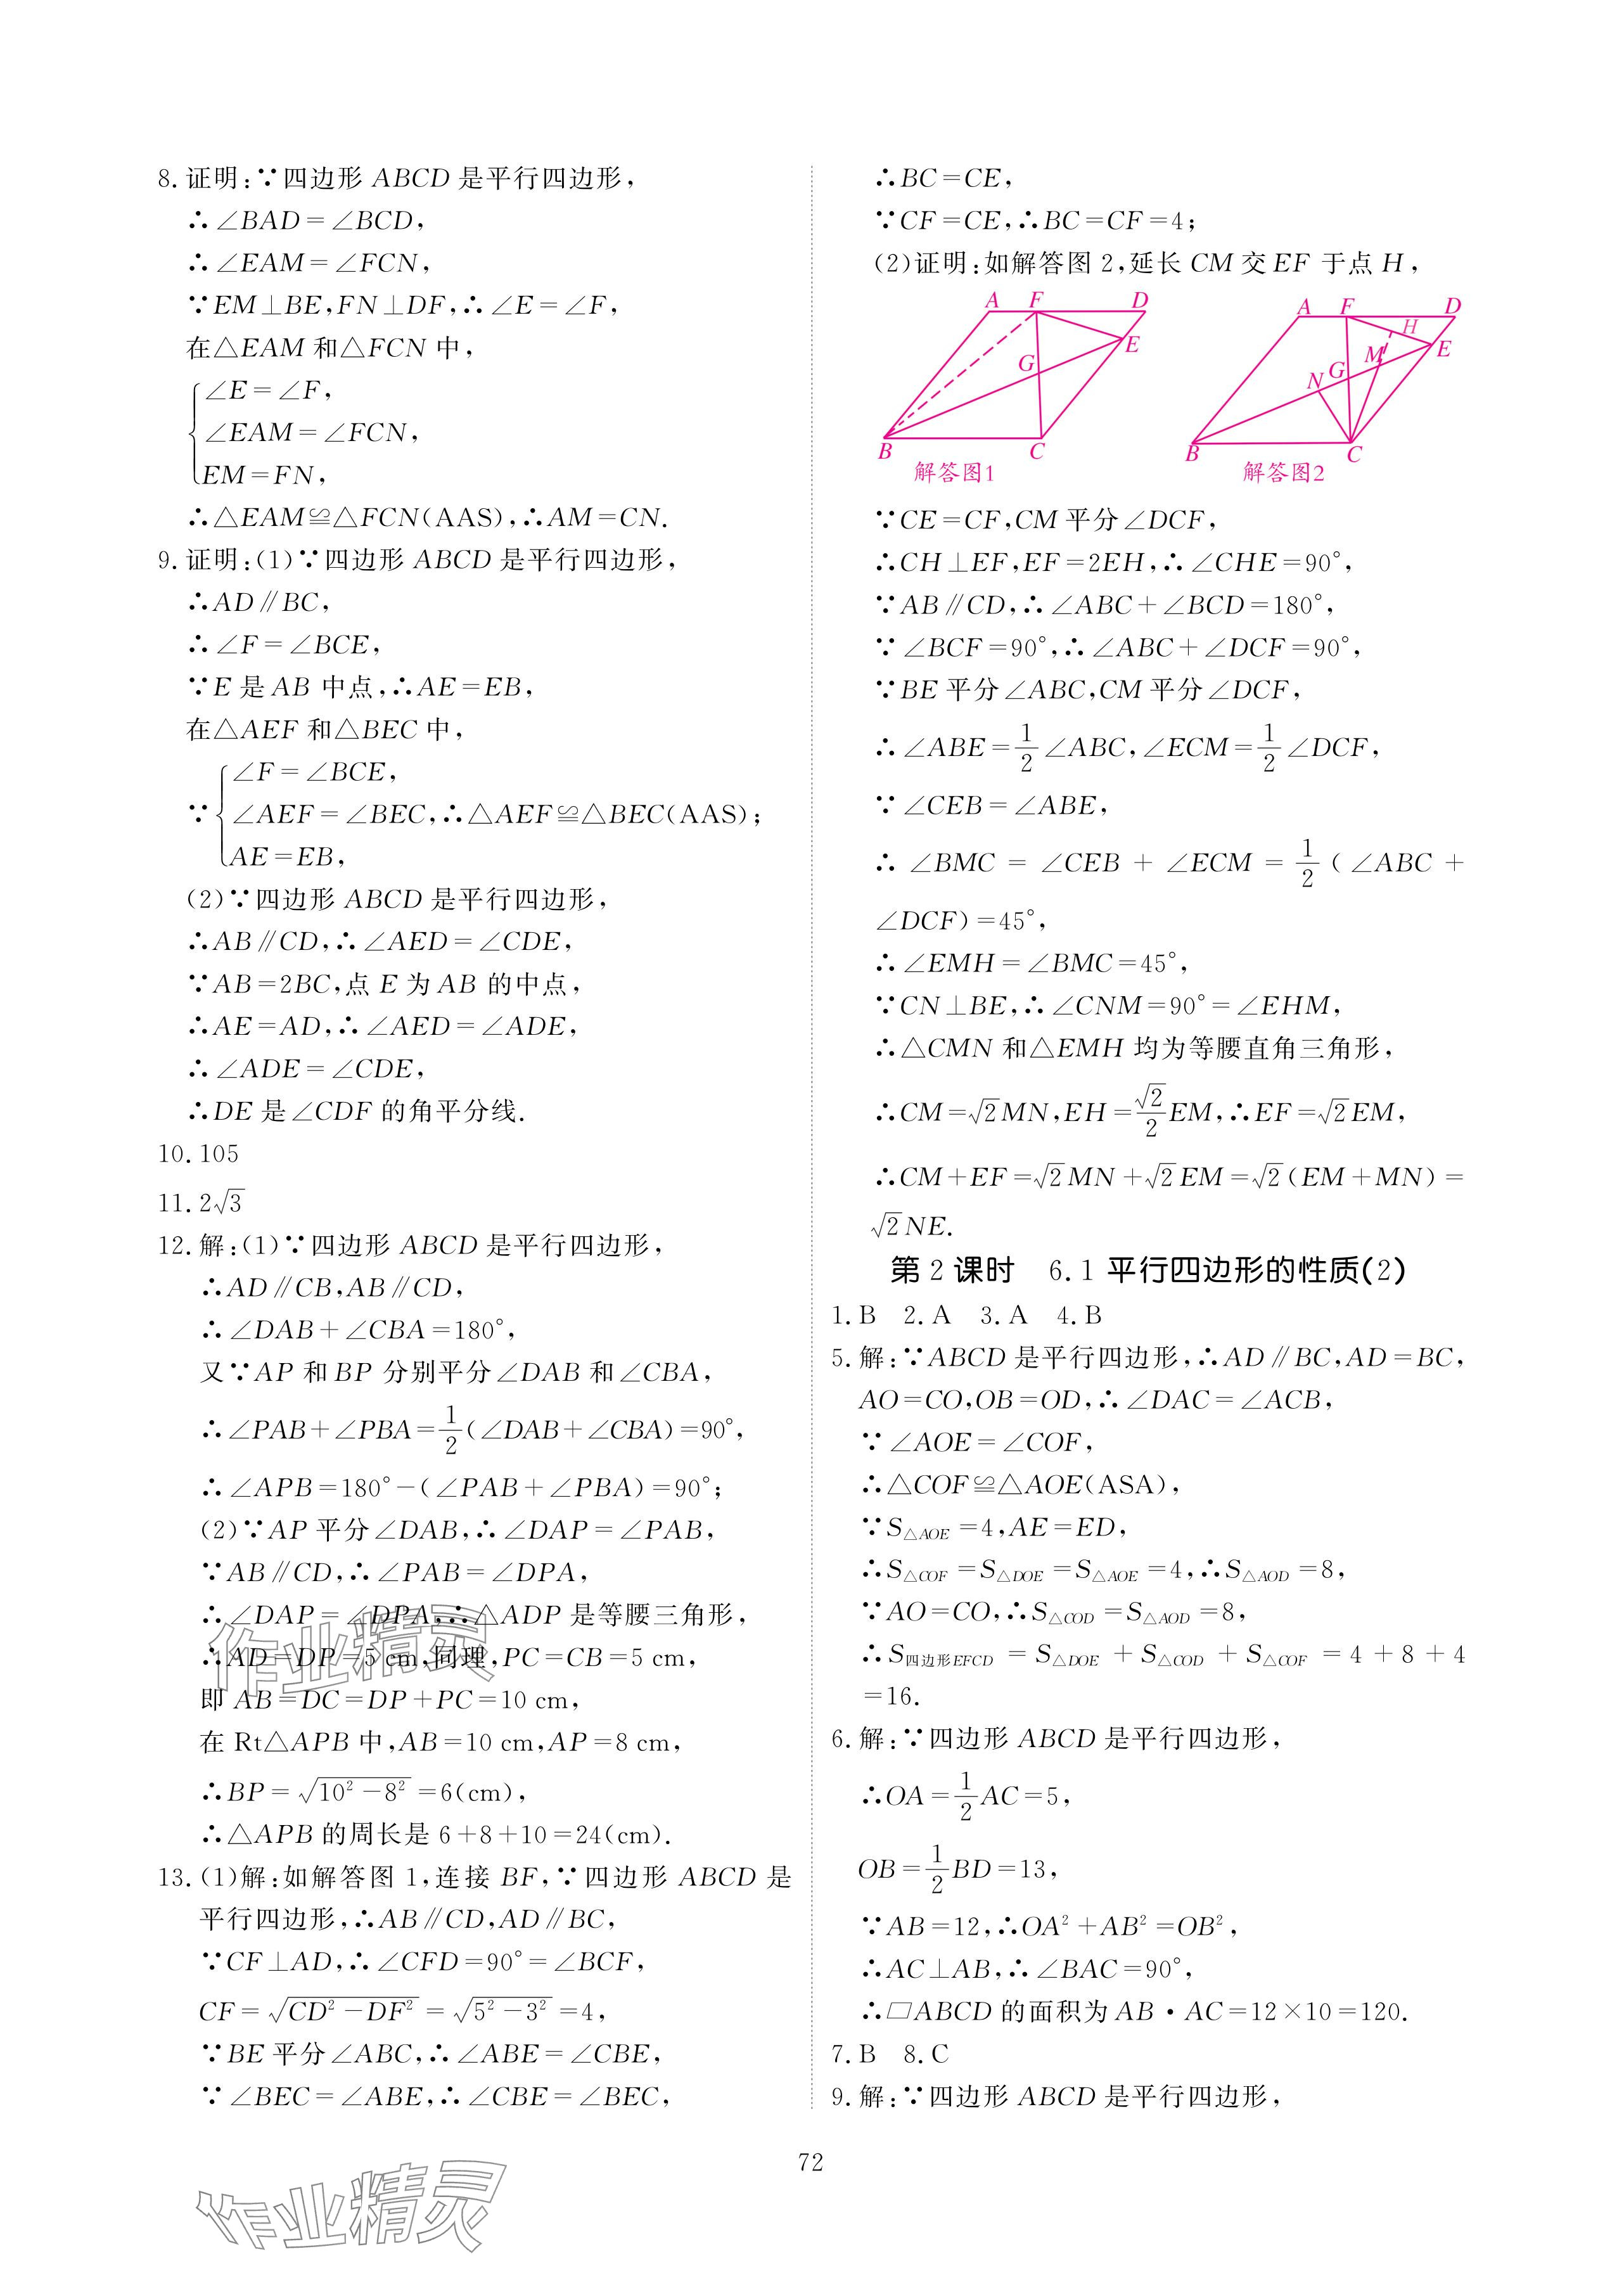 8. 证明:∵四边形 ABCD 是平行四边形,
∴∠BAD=∠BCD,
∴∠EAM=∠FCN,
∵EM⊥BE,FN⊥DF,∴∠E=∠F,
在△EAM 和△FCN 中,
∠E=∠F,
∠EAM=∠FCN,
EM=FN,
∴△EAM≌△FCN(AAS),∴AM=CN.
9. 证明:(1)∵四边形 ABCD 是平行四边形,
∴AD∥BC,
∴∠F=∠BCE,
∵E 是 AB 中点,∴AE=EB,
在△AEF 和△BEC 中,
∠F=∠BCE,
∵ ∠AEF=∠BEC,∴△AEF≌△BEC(AAS);
AE=EB,
(2)∵四边形 ABCD 是平行四边形,
∴AB∥CD,∴∠AED=∠CDE,
∵AB=2BC,点 E 为 AB 的中点,
∴AE=AD,∴∠AED=∠ADE,
∴∠ADE=∠CDE,
∴DE 是∠CDF 的角平分线.
10. 105
11. 2√3
12. 解:(1)∵四边形 ABCD 是平行四边形,
∴AD∥CB,AB∥CD,
∴∠DAB+∠CBA=180°,
又∵AP 和 BP 分别平分∠DAB 和∠CBA,
∴∠PAB+∠PBA=1/2(∠DAB+∠CBA)=90°,
∴∠APB=180°-(∠PAB+∠PBA)=90°;
(2)∵AP 平分∠DAB,∴∠DAP=∠PAB,
∵AB∥CD,∴∠PAB=∠DPA,
∴∠DAP=∠DPA,∴△ADP 是等腰三角形,
∴AD=DP=5 cm,同理,PC=CB=5 cm,
即 AB=DC=DP+PC=10 cm,
在 Rt△APB 中,AB=10 cm,AP=8 cm,
∴BP=√(10²-8²)=6(cm),
∴△APB 的周长是 6+8+10=24(cm).
13. (1)解:如解答图 1,连接 BF,∵四边形 ABCD 是
平行四边形,∴AB∥CD,AD∥BC,
∵CF⊥AD,∴∠CFD=90°=∠BCF,
CF=√(CD²-DF²)=√(5²-3²)=4,
∵BE 平分∠ABC,∴∠ABE=∠CBE,
∵∠BEC=∠ABE,∴∠CBE=∠BEC,
∴BC=CE,
∵CF=CE,∴BC=CF=4;
(2)证明:如解答图 2,延长 CM 交 EF 于点 H,
A F D
E
G
B C
解答图1
A F D
H
E
M
G
N
B C
解答图2
∵CE=CF,CM 平分∠DCF,
∴CH⊥EF,EF=2EH,∴∠CHE=90°,
∵AB∥CD,∴∠ABC+∠BCD=180°,
∵∠BCF=90°,∴∠ABC+∠DCF=90°,
∵BE 平分∠ABC,CM 平分∠DCF,
∴∠ABE=1/2∠ABC,∠ECM=1/2∠DCF,
∵∠CEB=∠ABE,
∴∠BMC=∠CEB+∠ECM=1/2(∠ABC+
∠DCF)=45°,
∴∠EMH=∠BMC=45°,
∵CN⊥BE,∴∠CNM=90°=∠EHM,
∴△CMN 和△EMH 均为等腰直角三角形,
∴CM=√2MN,EH=√2/2EM,∴EF=√2EM,
∴CM+EF=√2MN+√2EM=√2(EM+MN)=
√2NE.
第 2 课时 6.1 平行四边形的性质(2)
1. B 2. A 3. A 4. B
5. 解:∵ABCD 是平行四边形,∴AD∥BC,AD=BC,
AO=CO,OB=OD,∴∠DAC=∠ACB,
∵∠AOE=∠COF,
∴△COF≌△AOE(ASA),
∵S△AOE=4,AE=ED,
∴S△COF=S△DOE=S△AOE=4,∴S△AOD=8,
∵AO=CO,∴S△COD=S△AOD=8,
∴S四边形EFCD=S△DOE+S△COD+S△COF=4+8+4
=16.
6. 解:∵四边形 ABCD 是平行四边形,
∴OA=1/2AC=5,
OB=1/2BD=13,
∵AB=12,∴OA²+AB²=OB²,
∴AC⊥AB,∴∠BAC=90°,
∴▱ABCD 的面积为 AB·AC=12×10=120.
7. B 8. C
9. 解:∵四边形 ABCD 是平行四边形,
72
作业精灵
作业精灵